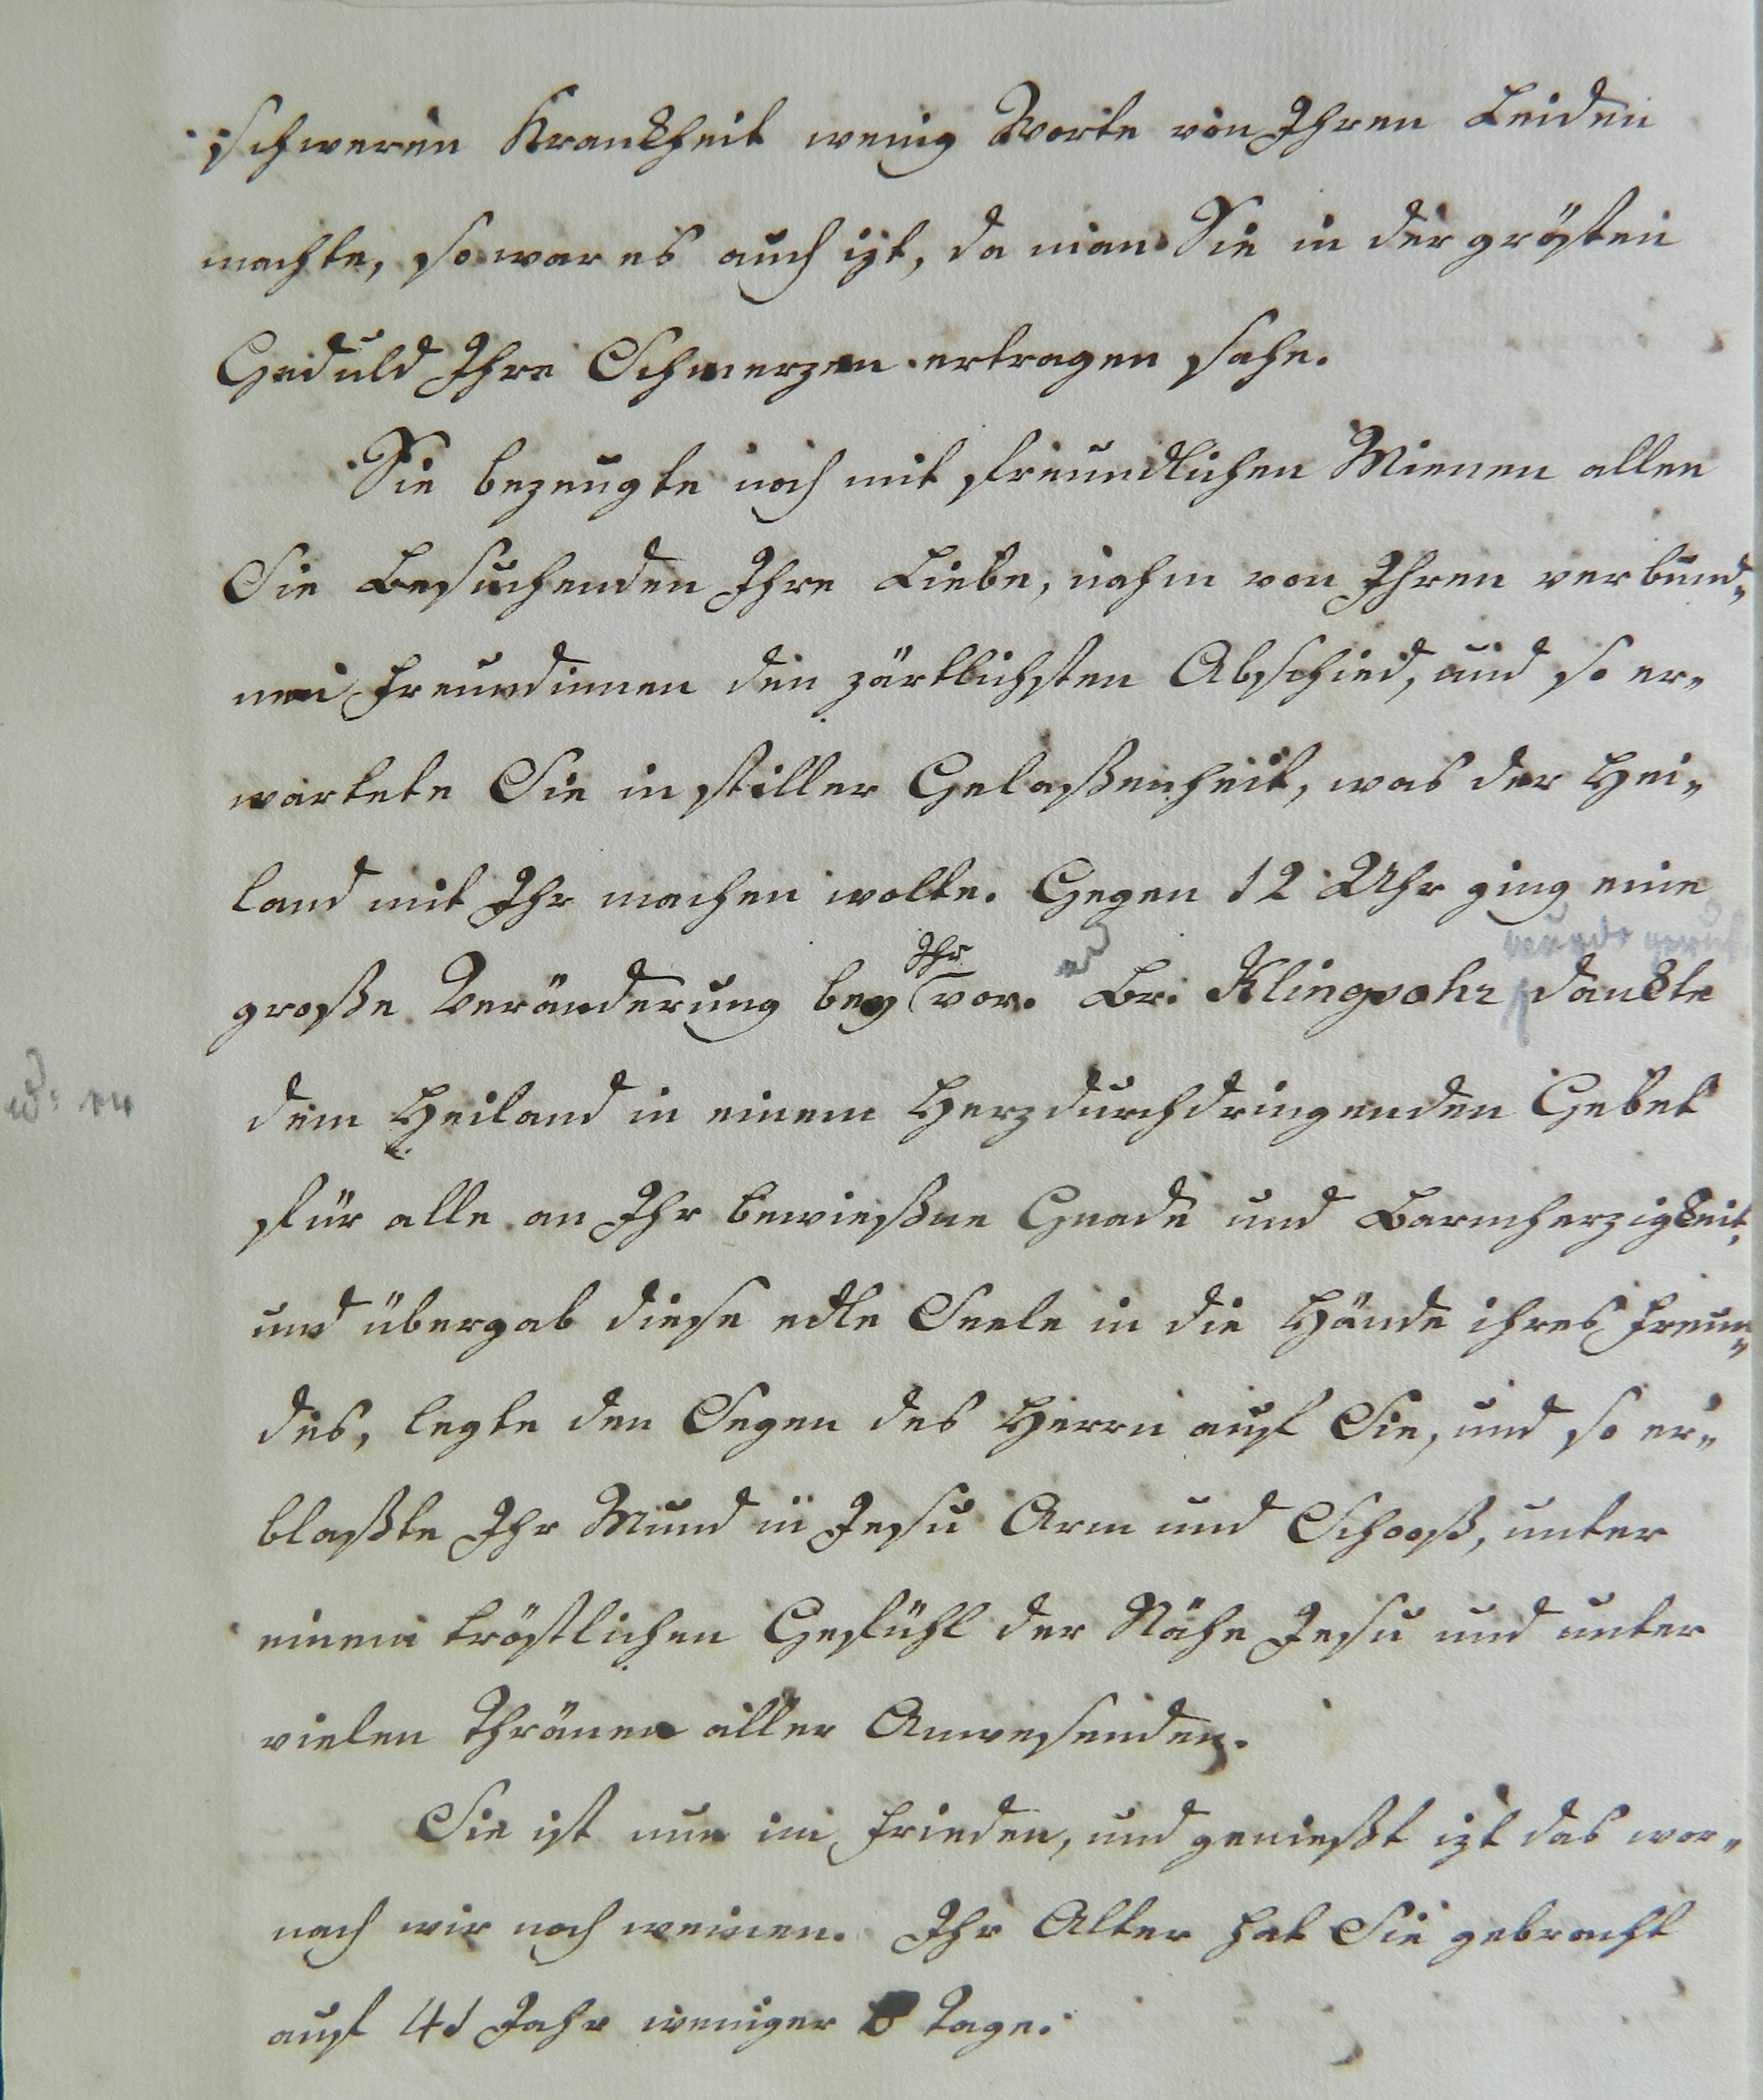 schweren Krankheit wenig Worte von Ihren Leiden
machte, so war es auch izt, da man Sie in der grösten
Geduld Ihre Schmerzen ertragen sahe.
Sie bezeugte noch mit freundlichen Mienen allen
Sie Besuchenden Ihre Liebe, nahm von Ihren verbund„
nen Freundinnen den zärtlichsten Abschied, und so er„
wartete Sie in stiller Gelaßenheit, was der Hei„
land mit Ihr machen wolte. Gegen 12 Uhr ging eine
große Veränderung bey Ihr vor. Br. Klingsohr dankte
dem Heiland in einem Herzdurchdringenden Gebet
für alle an Ihr bewießne Gnade und Barmherzigkeit,
und übergab diese edle Seele in die Hände ihres Freun„
des, legte den Segen des Herrn auf Sie, und so er„
blaßte Ihr Mund in Jesu Arm und Schooß, unter
einem tröstlichen Gefühl der Nähe Jesu und unter
vielen Thränen aller Anwesenden.
Sie ist nun im Frieden, und genießt izt das wor„
nach wir noch weinen. Ihr Alter hat Sie gebracht
auf 41 Jahr weniger Tage.